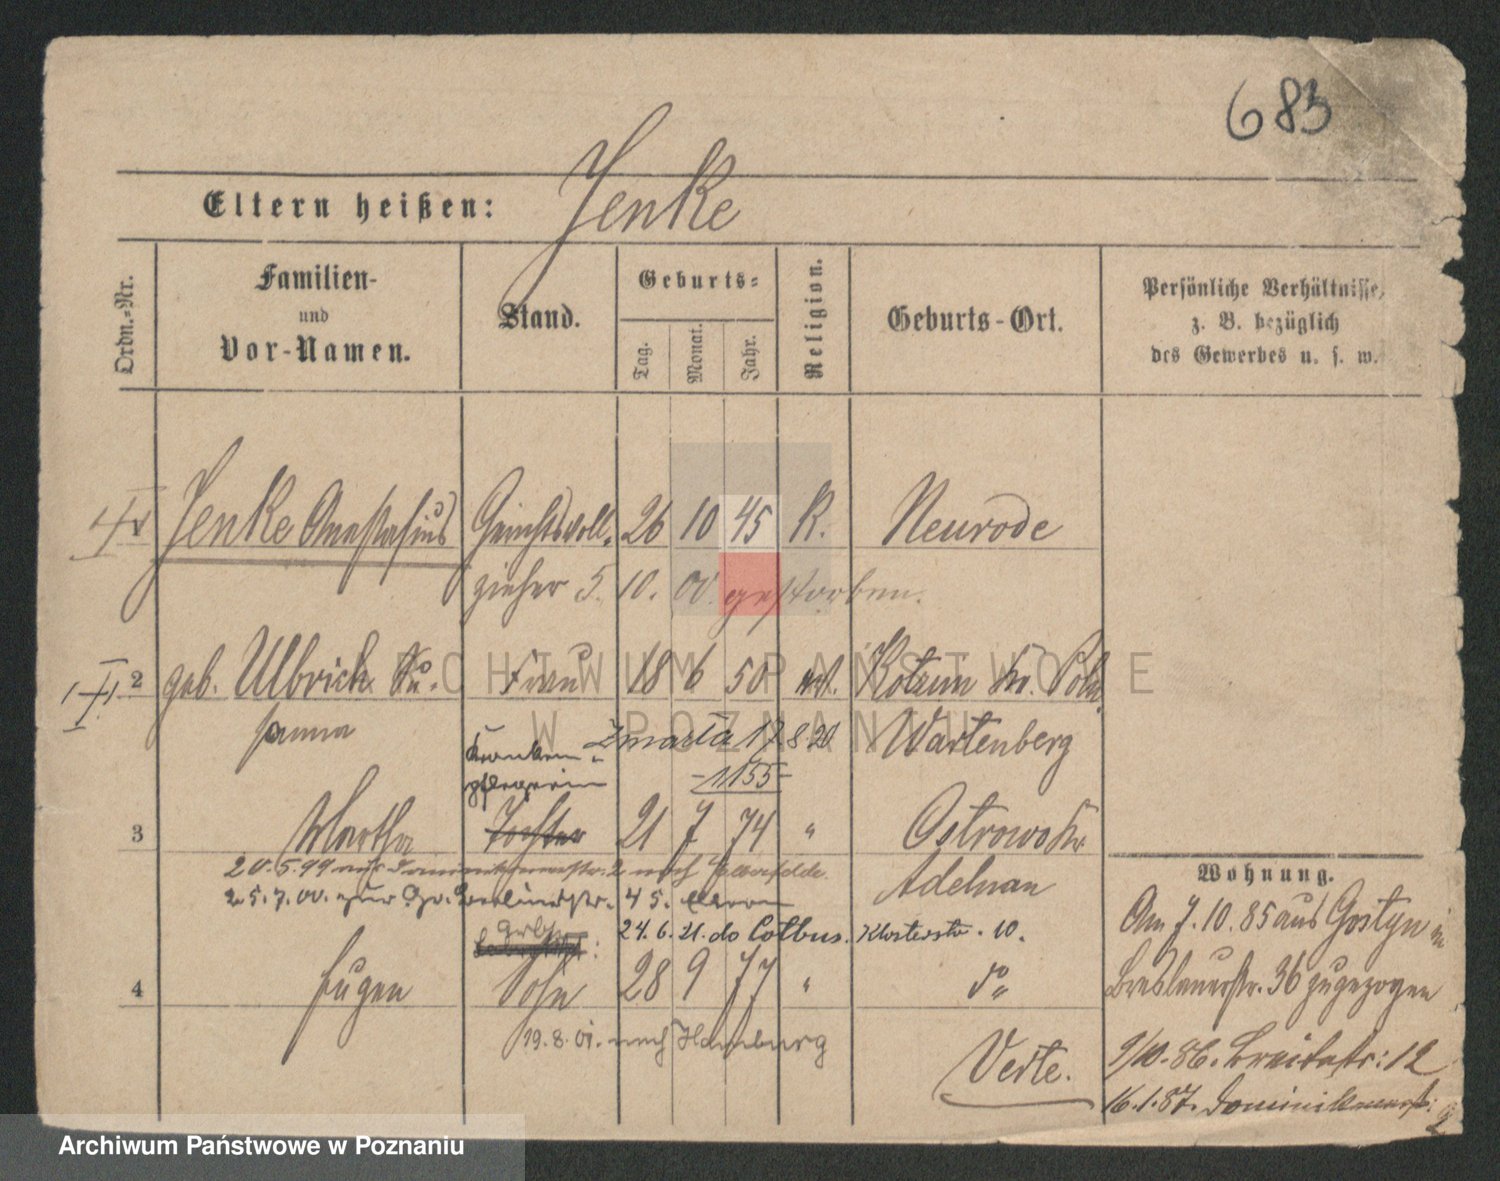 683
Eltern heißen: Jenke
Ordn.-Nr.
Familien- und Vor-Namen.
Stand.
Geburts-
Tag.
Monat.
Jahr.
Religion.
Geburts-Ort.
Persönliche Verhältnisse, z. B. bezüglich des Gewerbes u. s. w.
1 Jenke Anastasius Gerichtsvoll- 26 10 45 K. Neurode
zieher 5. 10. 00. gestorben.
2 geb. Ulbrich Su- Frau 18 6 50 Kr. Poln
sanna Zmarła 17 8 20 Wartenberg
Kranken-
pflegerin
1155
3 Martha Tochter 21 7 74 " Ostrowo Kr
20.5.99 nach Adelnau
25.7.00. zur Gr. Berlinerstr. 45.
24.6.21. do Cotbus. Klosterstr. 10.
4 Eugen Sohn 28 9 77 " do
19.8.01. nach Hamburg
Verte.
Wohnung.
Am 7.10.85 aus Gostyn in
Breslauerstr. 36 zugezogen
9/10.86. Breitestr: 12
16.1.87. Dominikanerstr: 2
ARCHIWUM PAŃSTWOWE
W POZNANIU
Archiwum Państwowe w Poznaniu